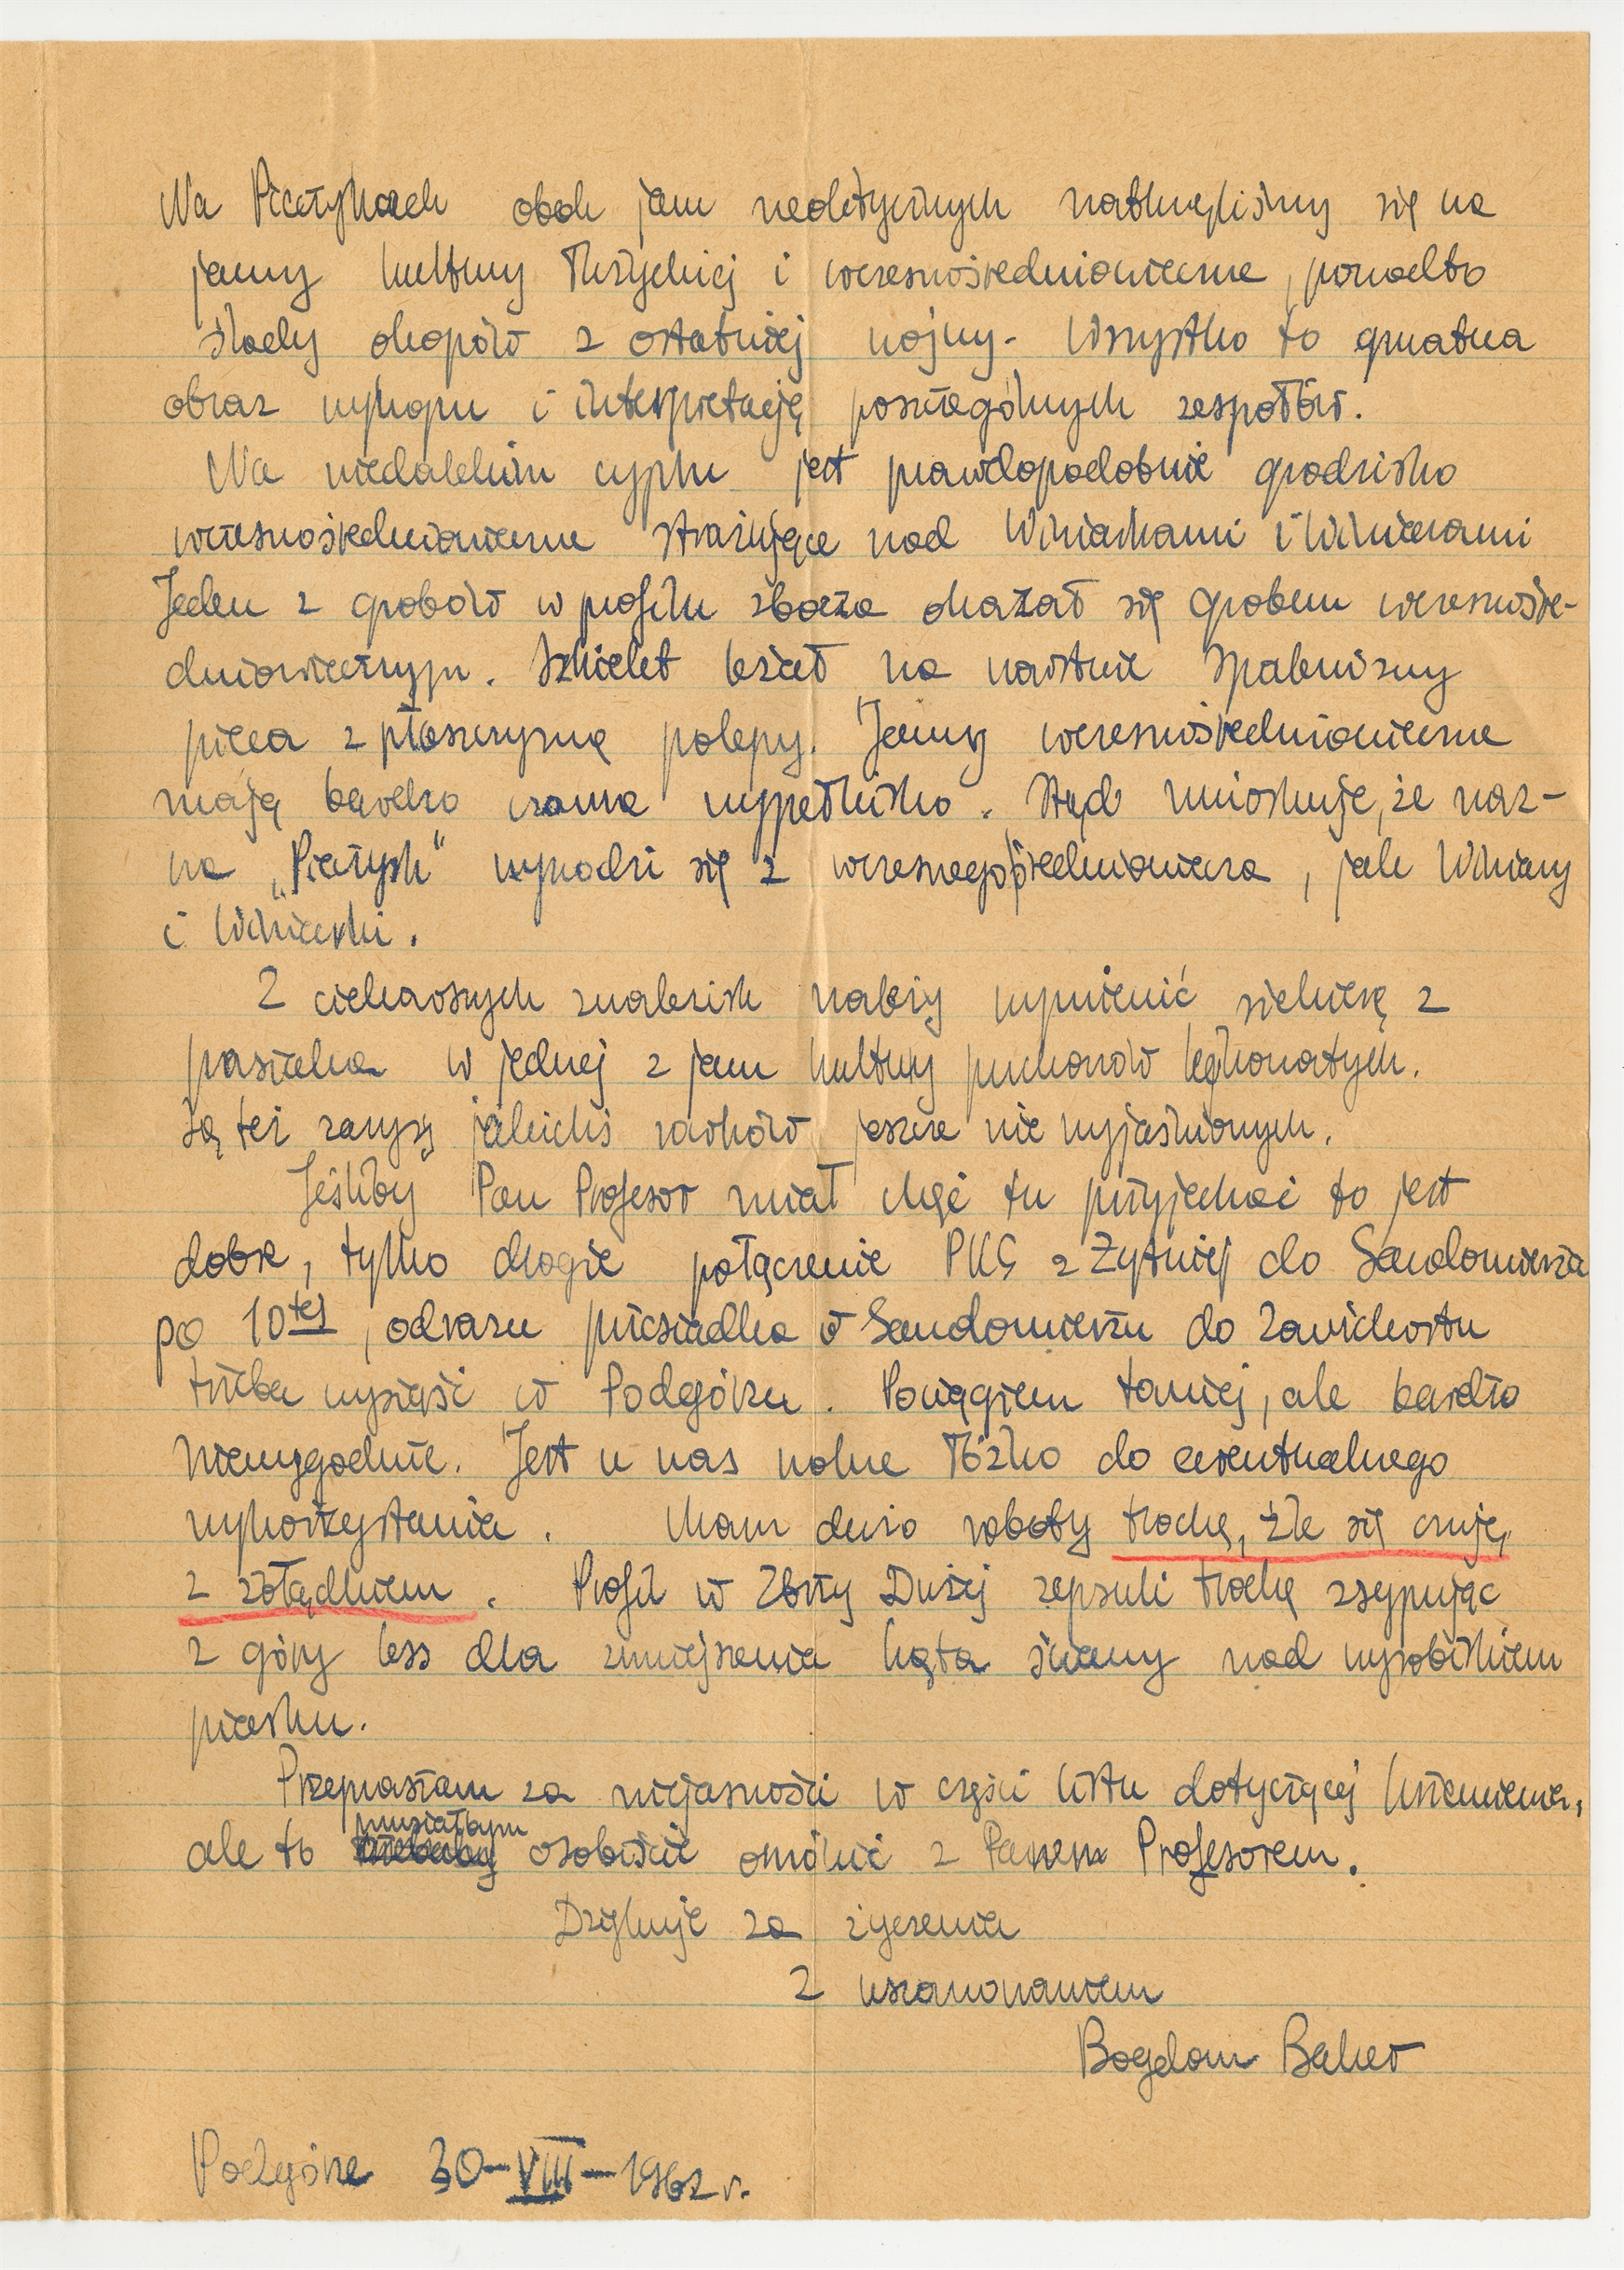 Na Pieczyskach obok jam neolitycznych natknęliśmy się na
jamy kultury łużyckiej i wczesnośredniowieczne, ponadto
ślady okopów z ostatniej wojny. Wszystko to gmatwa
obraz wykopu i interpretację poszczególnych zespołów.
Na niedalekim cyplu jest prawdopodobnie grodzisko
wczesnośredniowieczne strażujące nad Winiarkami i Winiarami
Jeden z grobów w profilu zbocza okazał się grobem wczesnośre-
dniowiecznym. Szkielet leżał na warstwie spalenizny
pieca z płaszczyzną polepy. Jamy wczesnośredniowieczne
mają bardzo czarne wypełnisko. Stąd wnioskuję, że naz-
wa „Pieczysk" wywodzi się z wczesnego średniowiecza, jak Winiary
i Winiarki.
Z ciekawszych znalezisk należy wymienić siekierkę z
pasiaka w jednej z jam kultury pucharów lejkowatych.
Są też zarysy jakichś rowków jeszcze nie wyjaśnionych.
Jeśliby Pan Profesor miał chęć tu przyjechać to jest
dobre, tylko drogie połączenie PKS z Żytniej do Sandomierza
po 10tej, odrazu przesiadka w Sandomierzu do Zawichostu
trzeba wysiąść w Podgórzu. Pociągiem taniej, ale bardzo
niewygodnie. Jest u nas wolne łóżko do ewentualnego
wykorzystania. Mam dużo roboty trochę, źle się czuję,
z żołądkiem. Profil w Zbrzy Dużej zepsuli trochę zsypując
z góry less dla zmniejszenia kąta ściany nad wyrobiskiem
piasku.
Przepraszam za niejasności w części listu dotyczącej krzemienia,
ale to musiałbym osobiście omówić z Panem Profesorem.
Dziękuję za życzenia
Z uszanowaniem
Bogdan Balcer
Podgórze 30-VIII-1962 r.